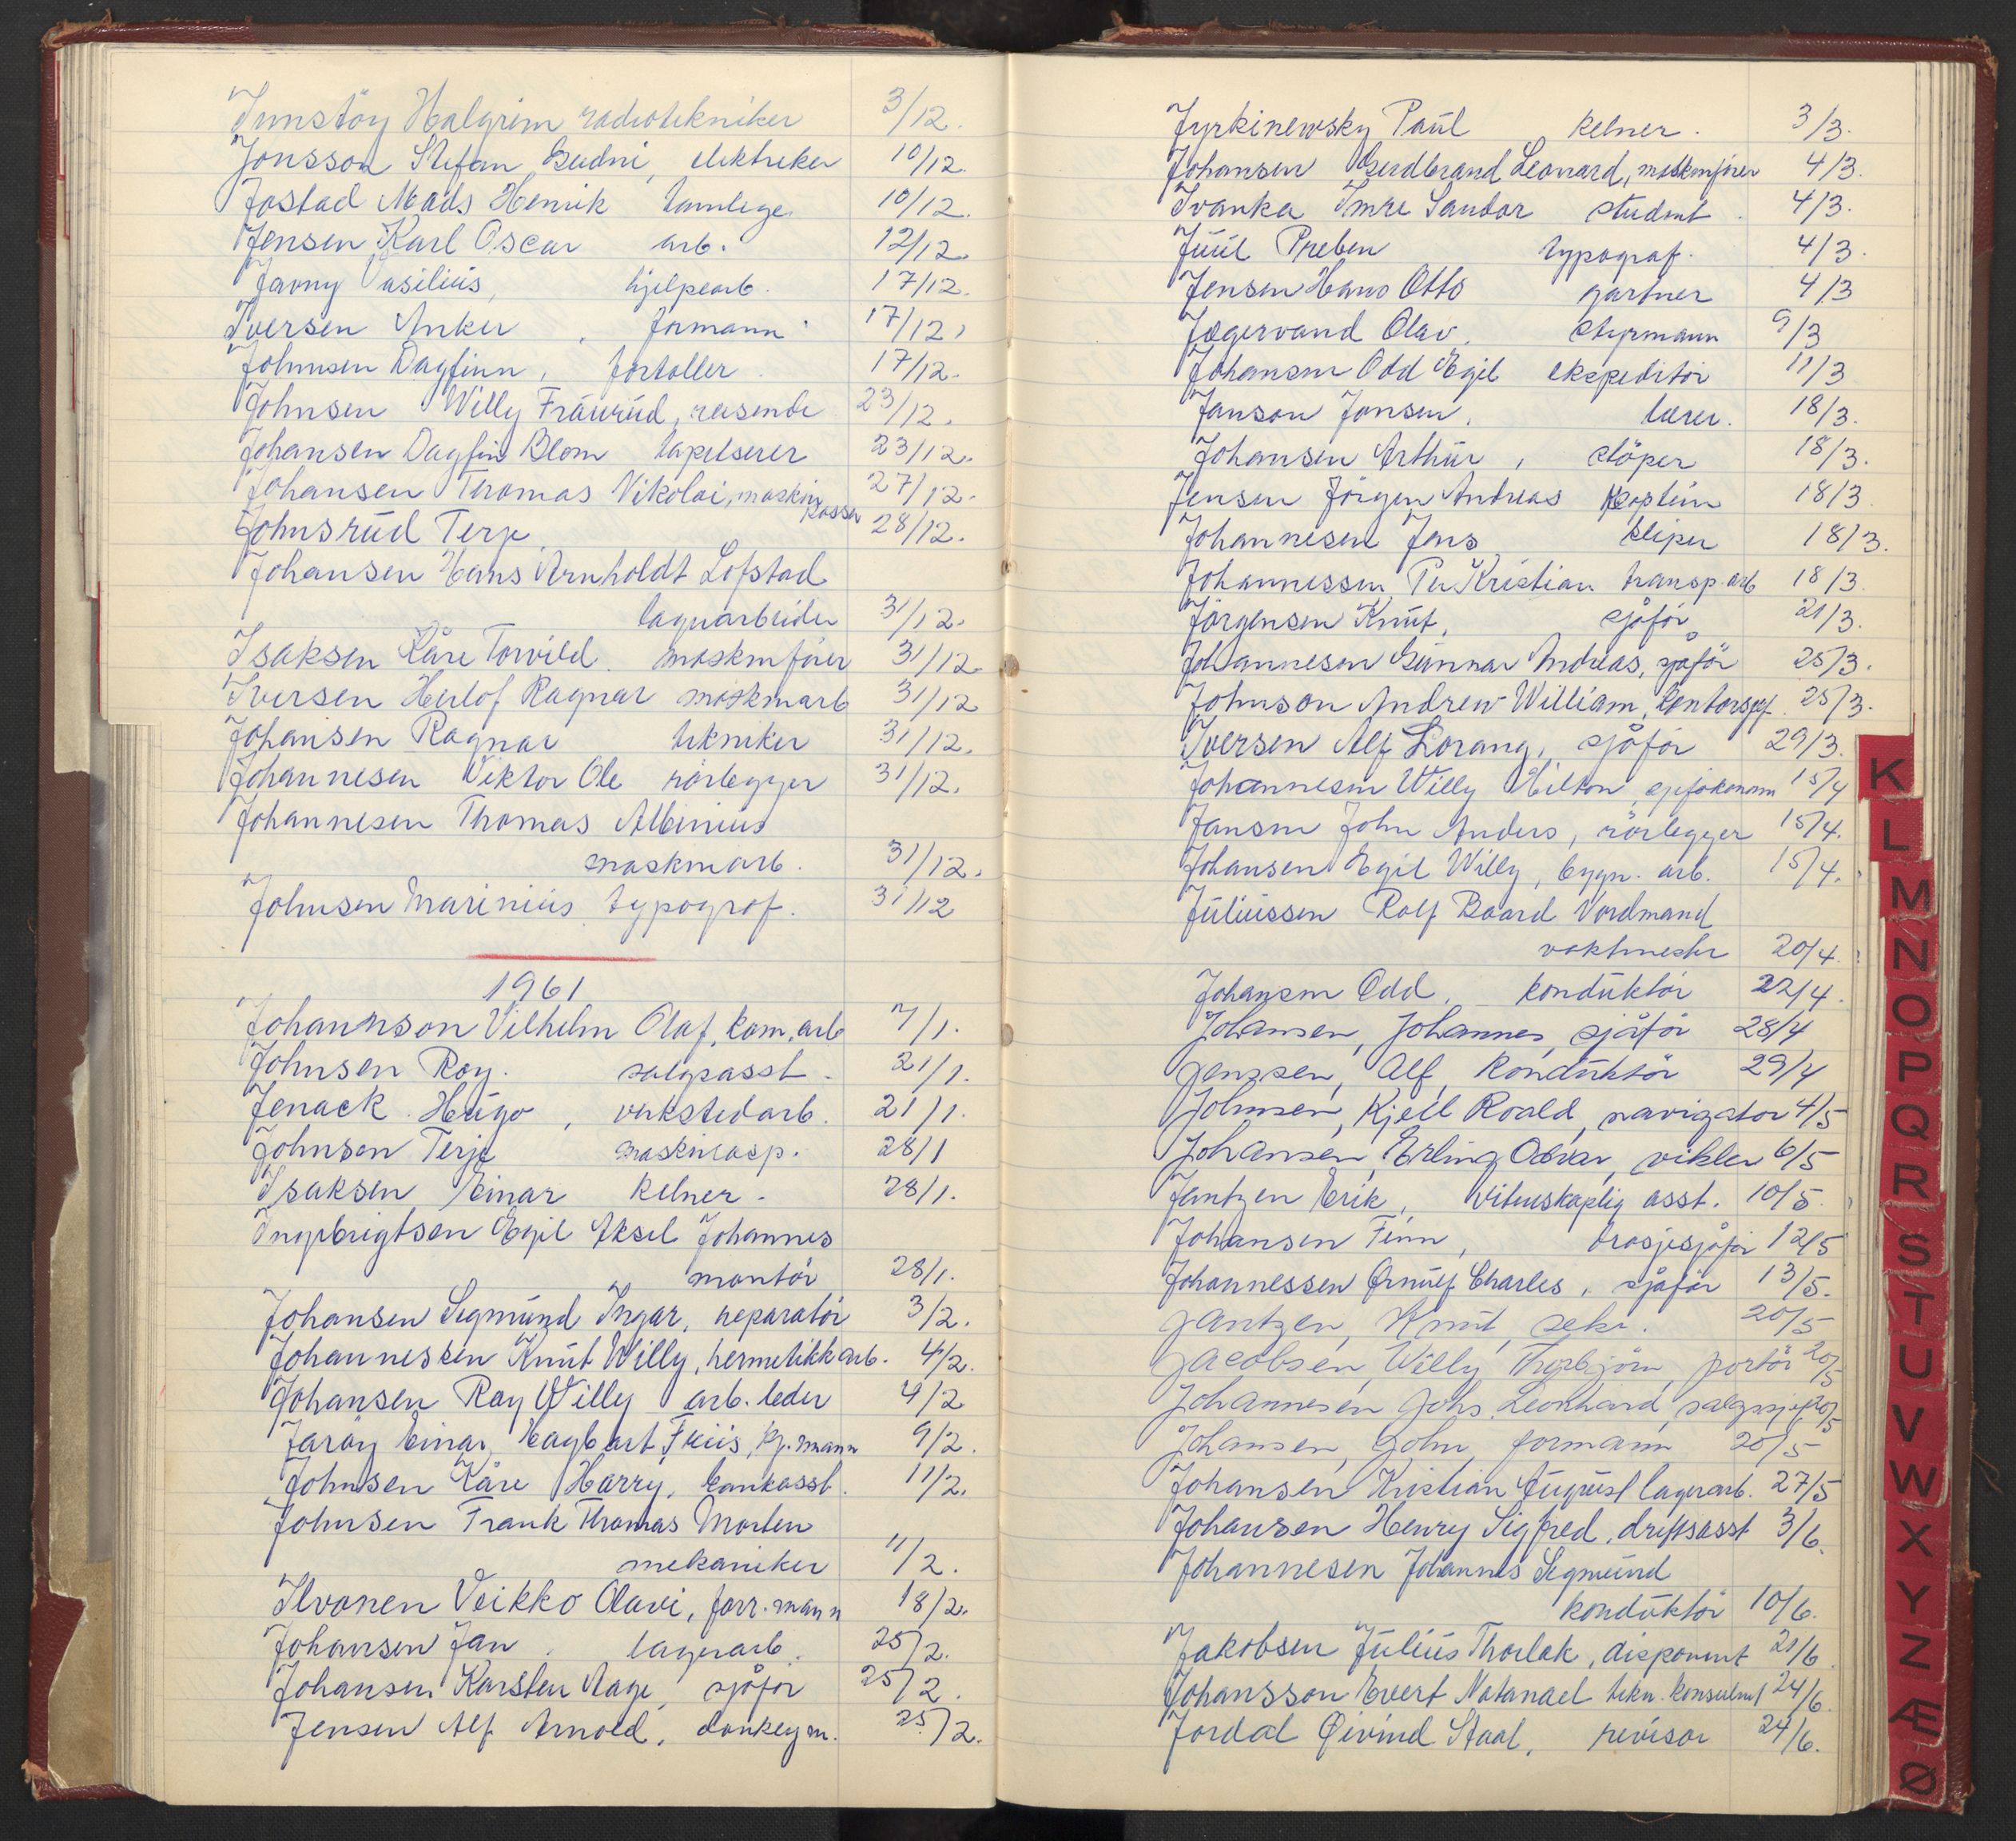 Innstöy Halgrim radiotekniker 3/12.
Jonsson Stefan Gudni, elektriker 10/12.
Jostad Mads Henrik tannlege. 10/12.
Jensen Karl Oscar arb. 12/12.
Javny Vasilius, hjelpearb. 17/12.
Iversen Anker, formann 17/12.
Johnsen Dagfinn, fortoller 17/12.
Johnsen Willy Fraurud, reisende 23/12.
Johansen Dagfin Blom tapetserer 23/12.
Johansen Thomas Nikolai, maskin 27/12.
passer
Johnsrud Terje 28/12.
Johansen Hans Arnholdt Lofstad
lagerarbeider 31/12.
Isaksen Kåre Torvild. maskinfører 31/12.
Iversen Herlof Ragnar maskinarb 31/12
Johansen Ragnar tekniker 31/12.
Johannesen Viktor Ole rörlegger 31/12.
Johannesen Thomas Albinius
maskinarb. 31/12.
Johnsen Marinius typograf. 31/12
1961
Johannson Vilhelm Olaf, kom.arb 7/1.
Johnsen Roy. salgsasst. 21/1.
Jenack Hugo, verkstedarb. 21/1.
Johnsen Terje maskinasp. 28/1
Isaksen Einar kelner. 28/1.
Ingebrigtsen Egil Aksel Johannes
montör 28/1.
Johansen Sigmund Ingar, reparatör 3/2.
Johannessen Knut Willy, hermetikkarb. 4/2.
Johansen Roy Willy arb. leder 4/2
Jaröy Einar, Hagbart Friis, kj.mann 9/2.
Johnsen Kåre Harry, bankasst. 11/2.
Johnsen Frank Thomas Morten
mekaniker 11/2.
Ilvonen Veikko Olavi, forr.mann 18/2.
Johansen Jan. lagerarb. 25/2.
Johansen Karsten Aage, sjåför 25/2.
Jensen Alf Arnold, donkeym. 25/2.
Jyrkinewsky Paul kelner. 3/3.
Johansen Gudbrand Leonard, maskinfører 4/3.
Ivanka Imre Sandor student. 4/3.
Juul Preben typograf. 4/3.
Jensen Hans Otto gartner 4/3
Jægervand Olav. styrmann 9/3
Johansen Odd Egil ekspeditör 11/3
Janson Jonsen, lærer. 18/3.
Johansen Arthur, stöper 18/3.
Jensen Jörgen Andreas Kaptein 18/3
Johannesen Jens sliper 18/3.
Johannessen, Per Kristian transp.arb 18/3.
Jörgensen Knut, sjåför 21/3.
Johannesen Gunnar Andreas, sjåför 25/3.
Johnson Andrew William, kontorsjef 25/3.
Iversen Alf Lorang, sjåför 29/3.
Johannesen Willy Hilton, sjefökonom 15/4
Jansen John Anders, rörlegger 15/4.
Johansen Egil Willy, bygn. arb. 15/4.
Juliussen Rolf Baard Nordmand
vaktmester 20/4.
Johansen Odd, konduktör 22/4.
Johansen, Johannes, sjåför 28/4
Jenssen, Alf, konduktör 29/4
Johnsen, Kjell Roald, navigatør 4/5
Johansen, Erling Oskar, vikler 6/5
Jantzen Erik, vitenskaplig asst. 10/5.
Johansen Finn, drosjesjåför 12/5
Johannessen Ørnulf Charles, sjåför 13/5.
Jantzen, Knut, sekr. 20/5
Jacobsen, Willy Thorbjörn, portör 20/5
Johannesen Johs. Leonhard, salgssjef 20/5
Johansen, John, formann 20/5
Johansen Kristian August lagerarb. 27/5
Johansen Henry Sigfred, driftsasst 3/6.
Johannesen Johannes Sigmund
konduktör 10/6.
Jakobsen Julius Thorlak, disponent 21/6
Johansson Evert Natanael tekn. konsulent 24/6
Jordal Øivind Staal, revisor 24/6.
K
L
M
N
O
P
Q
R
S
T
U
V
W
X
Y
Z
Æ
Ø